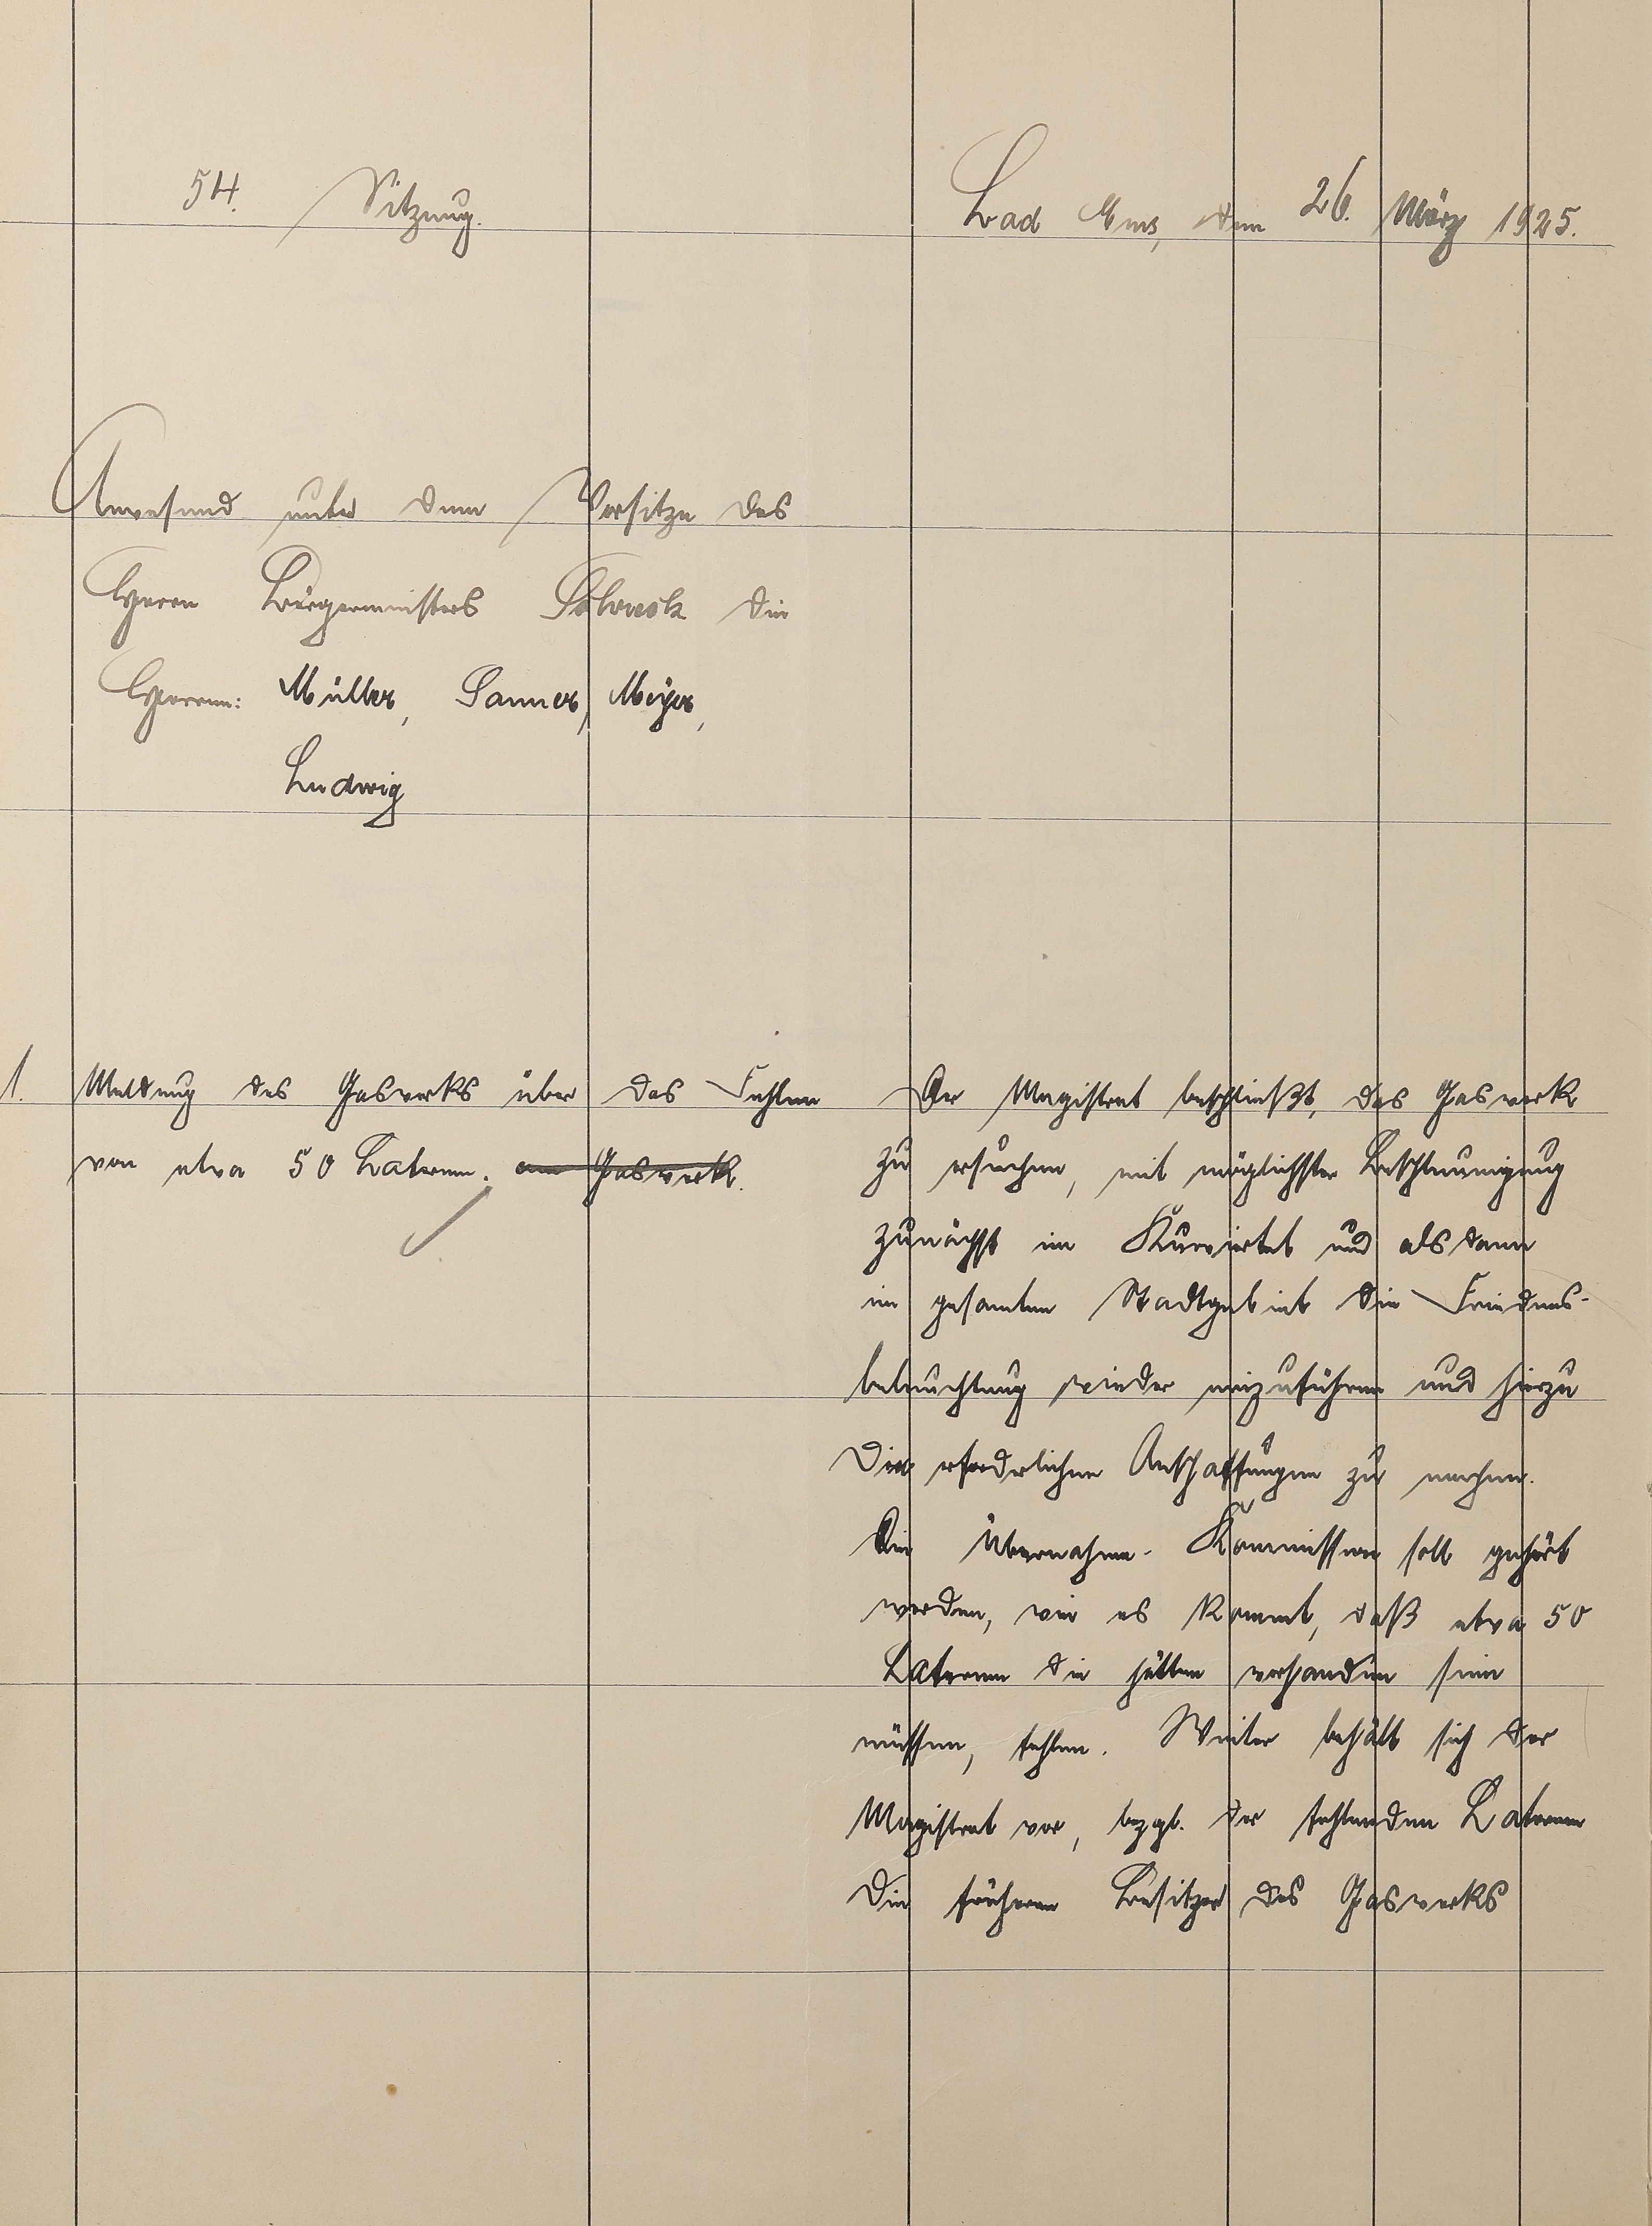 54. Sitzung.
Bad Ems, den 26. März 1925.
Anwesend unter dem Vorsitze des
Herrn Bürgermeisters die
Herren: Müller, Sanner, Meyer,
Ludwig
1. Meldung des Gaswerks über das Fehlen
von etwa 50 Laternen. am Gaswerk.
Der Magistrat beschließt, das Gaswerk
zu ersuchen, mit möglichster Beschleunigung
zunächst im Kurviertel und alsdann
im gesamten Stadtgebiet die Friedens-
beleuchtung wieder einzuführen und hierzu
die erforderlichen Anschaffungen zu machen.
Die Übernahme-Kommission soll gehört
werden, wie es kommt, daß etwa 50
Laternen die hätten vorhanden sein
müssen, fehlen. Weiter behält sich der
Magistrat vor, bezgl. der fehlenden Laternen
die früheren Besitzer des Gaswerks